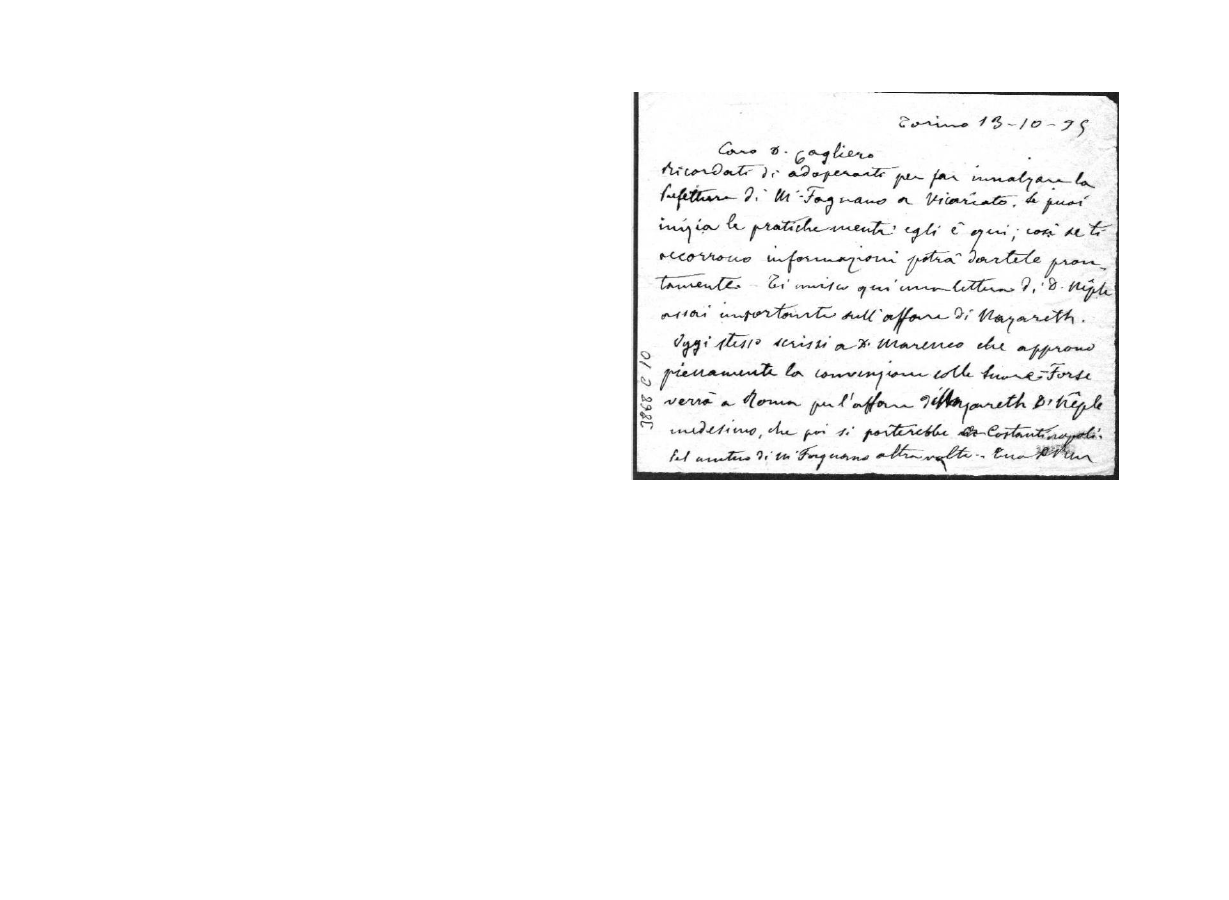 Torino 13-10-95
Caro D. Cagliero
Ricordati di adoperarti per far innalzare la
Prefettura di Mr Fagnano a Vicariato. Se puoi
inizia le pratiche mentr' egli è qui; così se ti
occorrono informazioni potrà dartele pron-
tamente. Ti unisco qui una lettera di D. Vêple
assai importante sull'affare di Nazareth.
Oggi stesso scrissi a D. Marenco che approvo
pienamente la convenzione colle Suore - Forse
verrà a Roma per l'affare di Nazareth D. Vêple
medesimo, che poi si porterebbe a Costantinopoli.
Del di Mr Fagnano altra volta - Tuo
3898 C 10